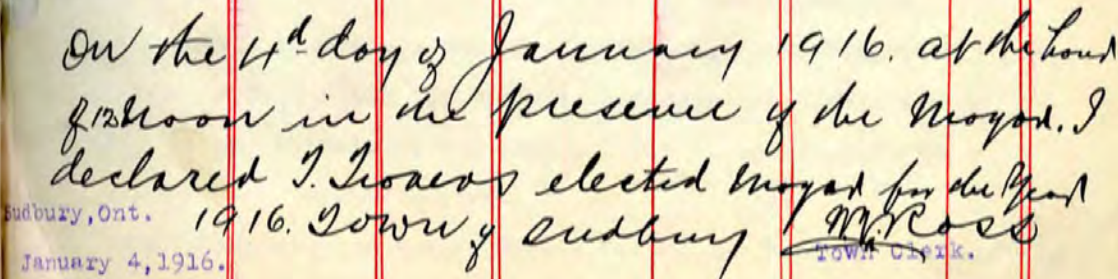 On the 4d day of January 1916. at the hour
of 12 Noon in the presence of the Mayor. I
declared T. Travers elected Mayor for the Year
Sudbury, Ont. 1916. Town of Sudbury W.J. Ross
January 4, 1916. Town Clerk.